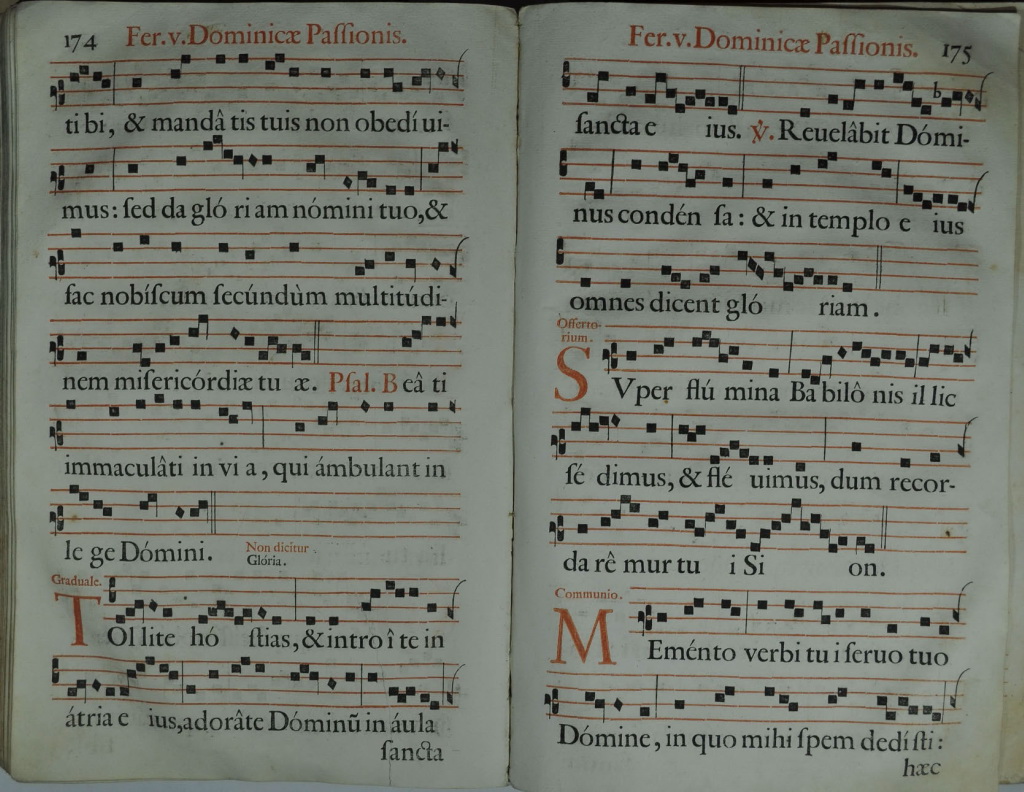 174 Fer.v.Dominicæ Paſſionis.
ti bi, & mandâ tis tuis non obedí ui-
mus: ſed da gló ri am nómini tuo,&
fac nobíſcum ſecúndùm multitúdi-
nem miſericórdiæ tu æ. Pſal. B eâ ti
immaculâti in vi a, qui ámbulant in
le ge Dómini. Non dicitur
Glória.
Graduale.
TOl lite hó ſtias, & intro î te in
átria e ius,adorâte Dóminũ in áula
ſancta
Fer.v.Dominicæ Paſſionis. 175
ſancta e ius. ℣. Reuelâbit Dómi-
nus condén ſa: & in templo e ius
omnes dicent gló riam.
Offerto-
rium.
SVper flú mina Ba bilô nis il lic
ſé dimus, & flé uimus, dum recor-
da rê mur tu i Si on.
Communio.
MEménto verbi tu i ſeruo tuo
Dómine, in quo mihi ſpem dedí ſti:
hæc